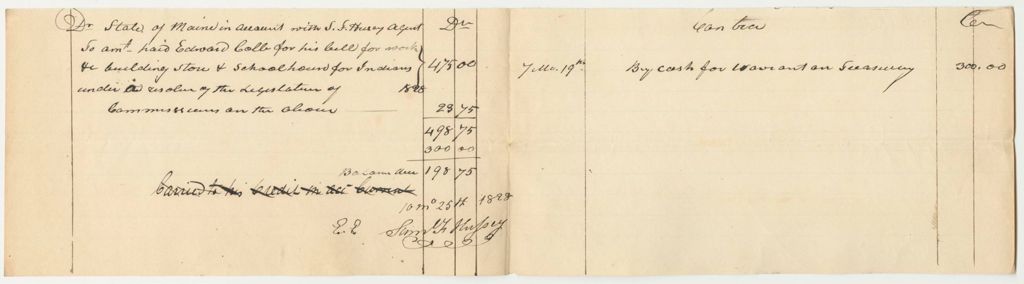 Dr State of Maine in account with S. F. Hussey Agent Dr
To amt paid Edward Cobb for his bill for work
&c building Store & Schoolhouse for Indians 475 00
under a resolve of the Legislature of 1828
Commissions on the above 23 75
498 75
300 00
Balance due 198 75
Carried to his credit in acc Current
10 mo 25th 1828
E. E Saml F Hussey
Contra Cr
7 Mo. 19th By cash for warrant on Treasury 300.00